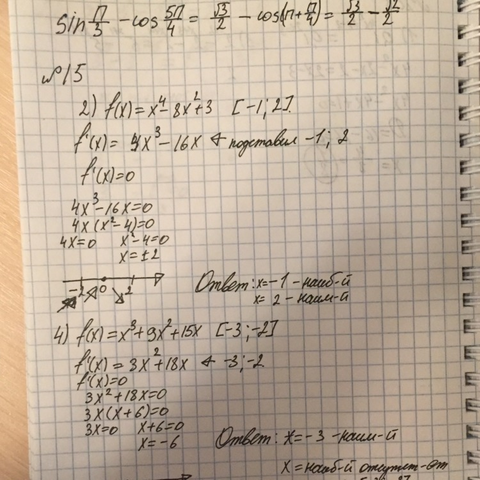 sin π/3 - cos 5π/4 = √3/2 - cos(π+π/4) = √3/2 - √2/2
№15
2) f(x) = x⁴ - 8x² + 3 [-1; 2].
f'(x) = 4x³ - 16x подставил -1; 2
f'(x) = 0
4x³ - 16x = 0
4x(x² - 4) = 0
4x = 0 x² - 4 = 0
x = ±2
-2 0 2
Ответ: x = -1 - наиб-й
x = 2 - наим-й
4) f(x) = x³ + 9x² + 15x [-3; -2]
f'(x) = 3x² + 18x -3; -2
f'(x) = 0
3x² + 18x = 0
3x(x + 6) = 0
3x = 0 x + 6 = 0
x = -6
Ответ: x = -3 - наим-й
x = наиб-й отсутст-ет